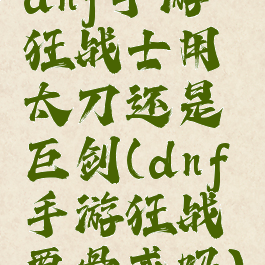 dnf手游
狂战士用
太刀还是
巨剑(dnf
手游狂战